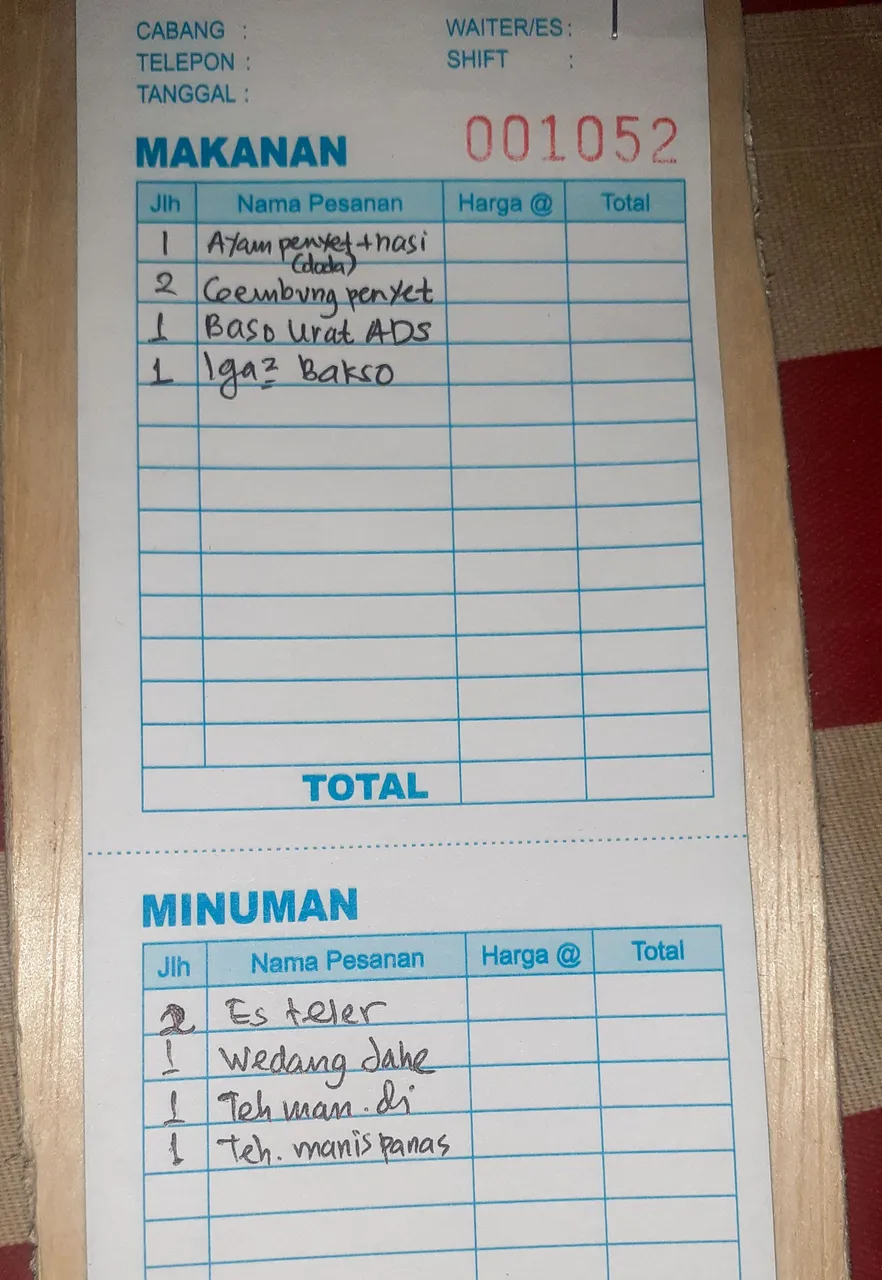 CABANG :
WAITER/ES :
TELEPON :
SHIFT :
TANGGAL :
MAKANAN 001052
Jlh Nama Pesanan Harga @ Total
1 Ayam penyet + nasi
(dada)
2 Gembung penyet
1 Baso Urat ADS
1 Iga2 Bakso
TOTAL
MINUMAN
Jlh Nama Pesanan Harga @ Total
2 Es teler
1 Wedang Jahe
1 Teh man . di
1 Teh . manis panas